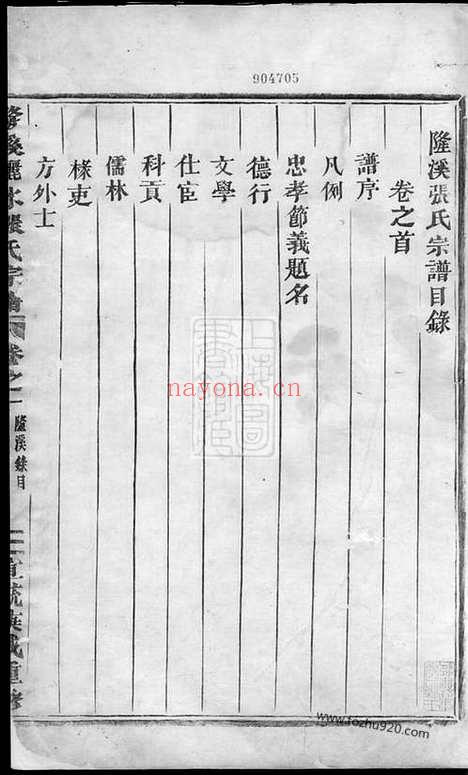 904705
隆溪張氏宗譜目錄
卷之首
譜序
凡例
忠孝節義題名
德行
文學
仕宦
科貢
儒林
椽吏
方外士
隆溪麗水張氏宗譜
卷之一
隆溪錄目
宣統庚戌重修
nayona.cn
www.fozhu920.com